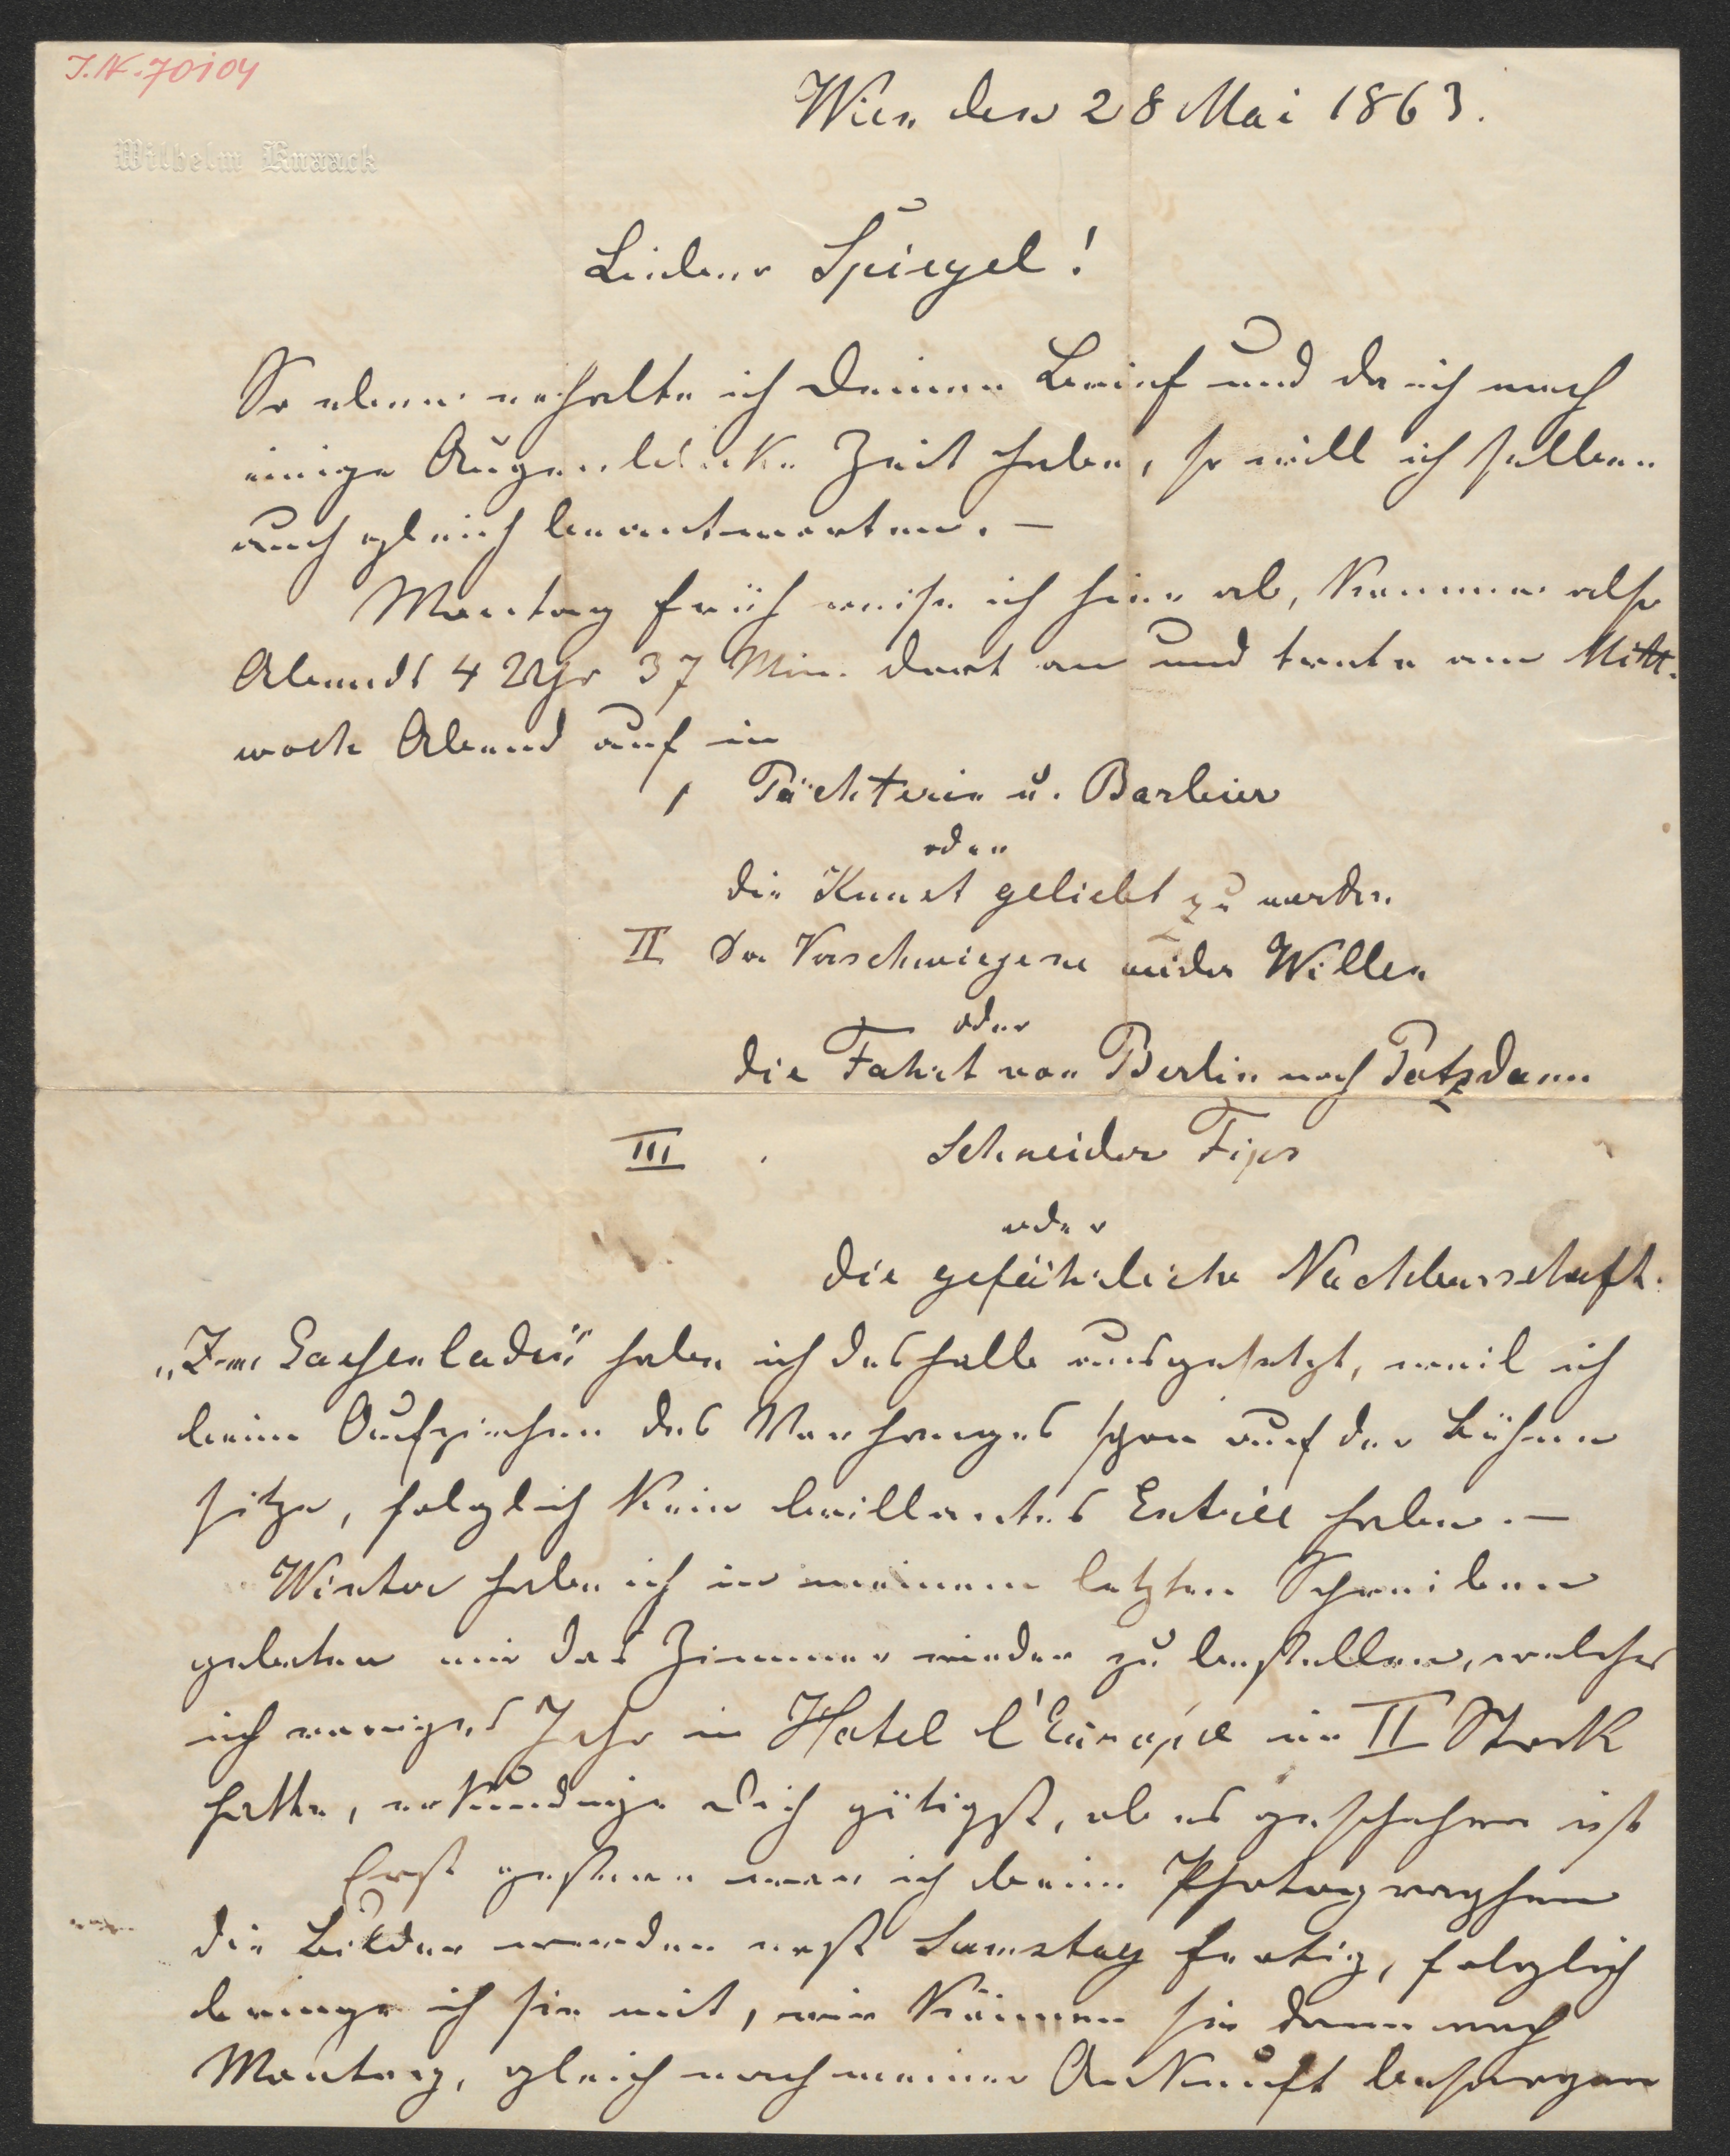 I.N. 70104
Wien den 28 Mai 1863.
Wilhelm Knaack
Lieber Spiegel!
So eben erhalte ich Deinen Brief und da ich noch
einige Augenblicke Zeit habe, so will ich selben
auch gleich beantworten. –
Montag früh reise ich hier ab, komme also
Abends 4 Uhr 37 Min. dort an und trete am Mitt-
woch Abend auf in
I Pächterin u. Barbier
oder
die Kunst geliebt zu werden
II Der Verschwiegene wider Willen
oder
die Fahrt von Berlin nach Potzdamm
III Schneider Fips
oder
die gefährliche Nachbarschaft.
„Im Gassenladen“ habe ich deshalb ausgesetzt, weil ich
beim Aufziehen des Vorhanges schon auf der Bühne
sitze, folglich kein brillantes Entrée habe. –
Winter habe ich in meinem letzten Schreiben
gebeten mir das Zimmer wieder zu bestellen, welches
ich voriges Jahr in Hotel l'Europe im II Stock
hatte, erkundige Dich gütigst, ob es geschehen ist
Erst gestern war ich beim Photographen
die Bilder werden erst Samstag fertig, folglich
bringe ich sie mit, wir können sie dann noch
Montag, gleich nach meiner Ankunft besorgen